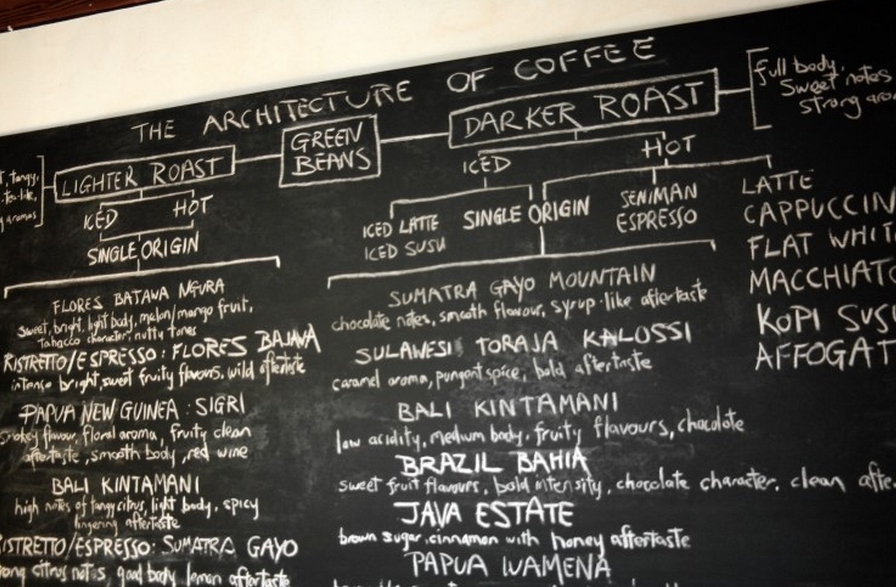 THE ARCHITECTURE OF COFFEE
GREEN
BEANS
LIGHTER ROAST
tangy,
aromas
ICED
HOT
SINGLE ORIGIN
FLORES BAJAWA NGURA
sweet, bright, light body, melon/mango fruit,
tobacco character, nutty tones
RISTRETTO/ESPRESSO: FLORES BAJAWA
intense bright, sweet fruity flavours, wild aftertaste
PAPUA NEW GUINEA: SIGRI
smokey flavour, floral aroma, fruity clean
aftertaste, smooth body, red wine
BALI KINTAMANI
high notes of tangy citrus, light body, spicy
lingering aftertaste
RISTRETTO/ESPRESSO: SUMATRA GAYO
citrus notes, good body lemon aftertaste
DARKER ROAST
full body,
Sweet notes
strong
ICED
HOT
ICED LATTE
ICED SUSU
SINGLE ORIGIN
SENIMAN
ESPRESSO
LATTE
CAPPUCCIN
FLAT WHIT
MACCHIAT
KOPI SUS
AFFOGAT
SUMATRA GAYO MOUNTAIN
chocolate notes, smooth flavour, syrup-like aftertaste
SULAWESI TORAJA KALOSSI
caramel aroma, pungent spice, bold aftertaste
BALI KINTAMANI
low acidity, medium body, fruity flavours, chocolate
BRAZIL BAHIA
sweet fruit flavours, bold intensity, chocolate character, clean afte
JAVA ESTATE
brown sugar, cinnamon with honey aftertaste
PAPUA WAMENA